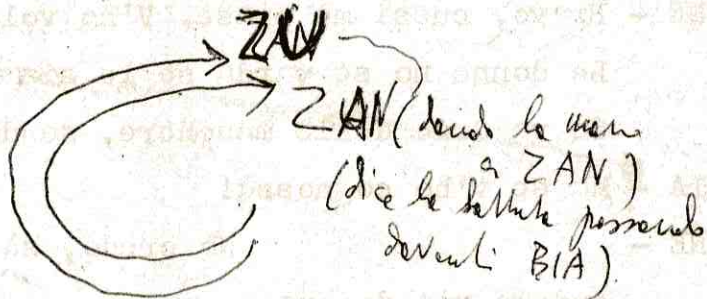 ZAN
ZAN (dando la mano
a ZAN)
(dice la battuta passando
davanti BIA).